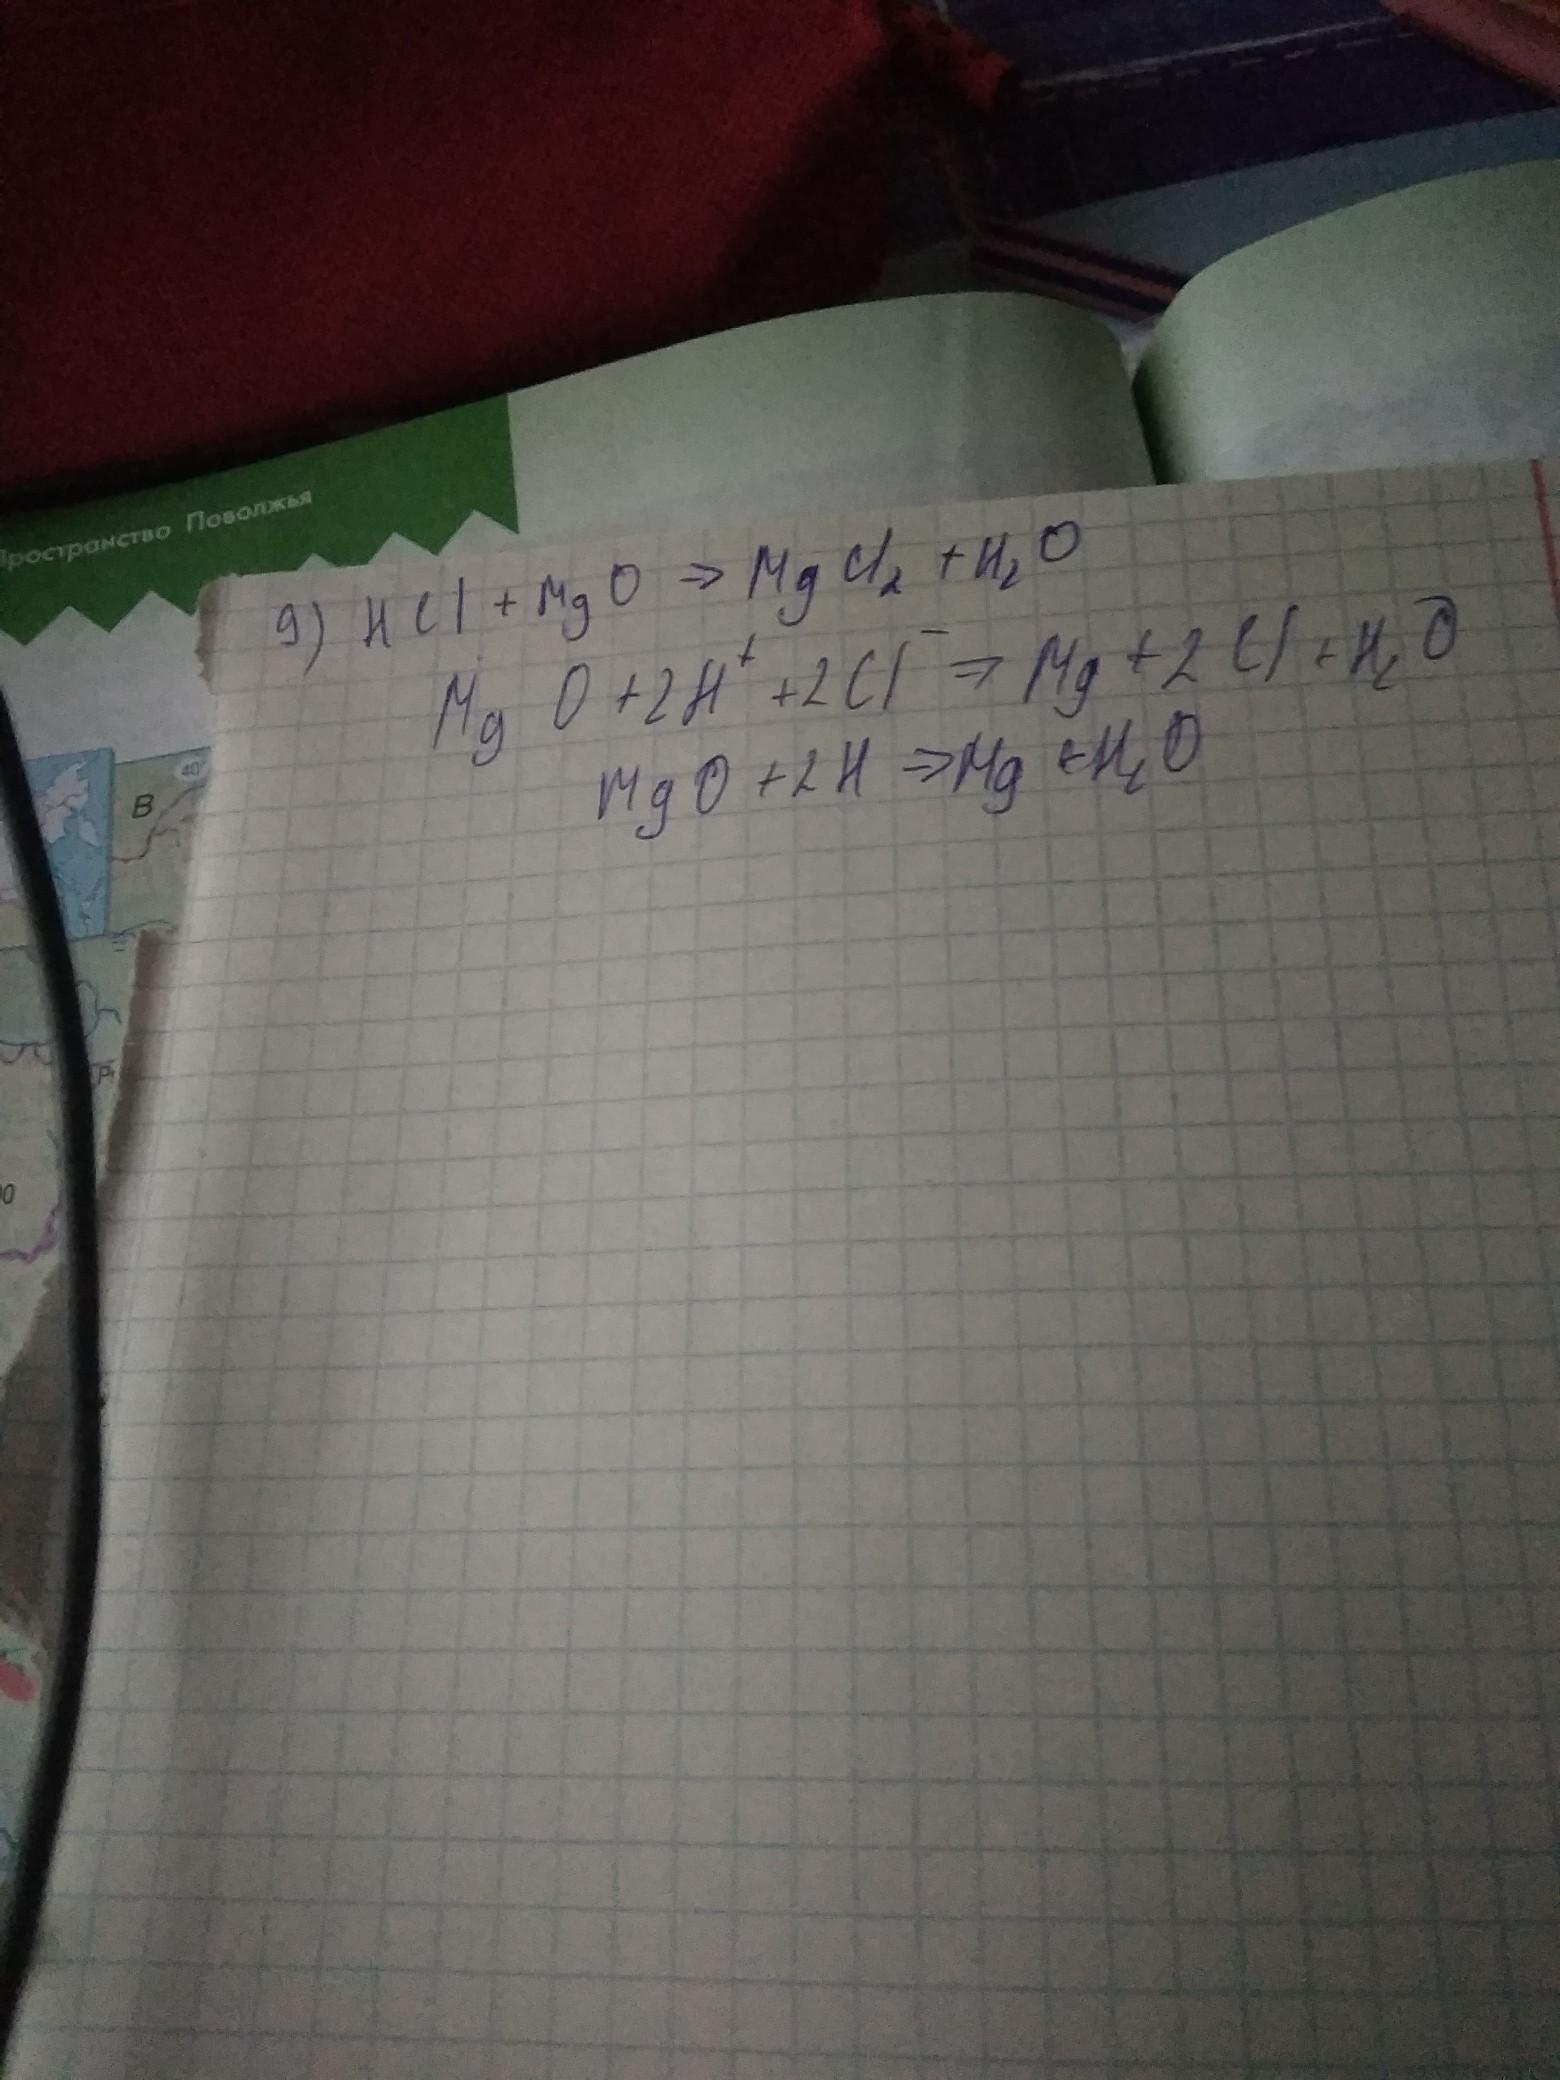 Пространство Поволжья
9) HCl + MgO ⇒ MgCl₂ + H₂O
MgO + 2H⁺ + 2Cl⁻ ⇒ Mg + 2Cl + H₂O
MgO + 2H ⇒ Mg + H₂O
40°
В